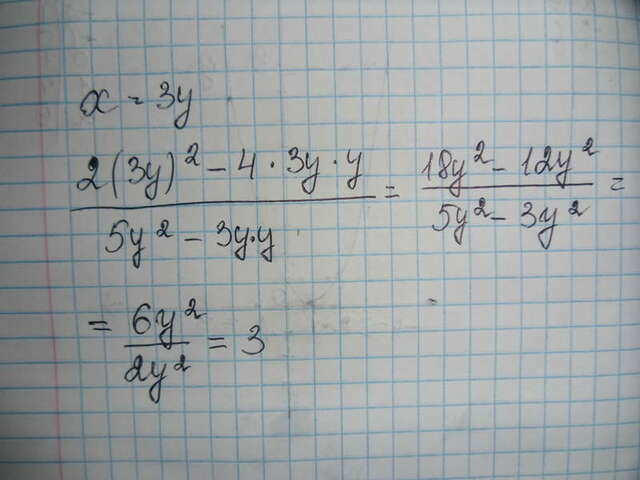 x = 3y
2(3y)² - 4 · 3y · y / 5y² - 3y·y = 18y² - 12y² / 5y² - 3y² =
= 6y² / 2y² = 3